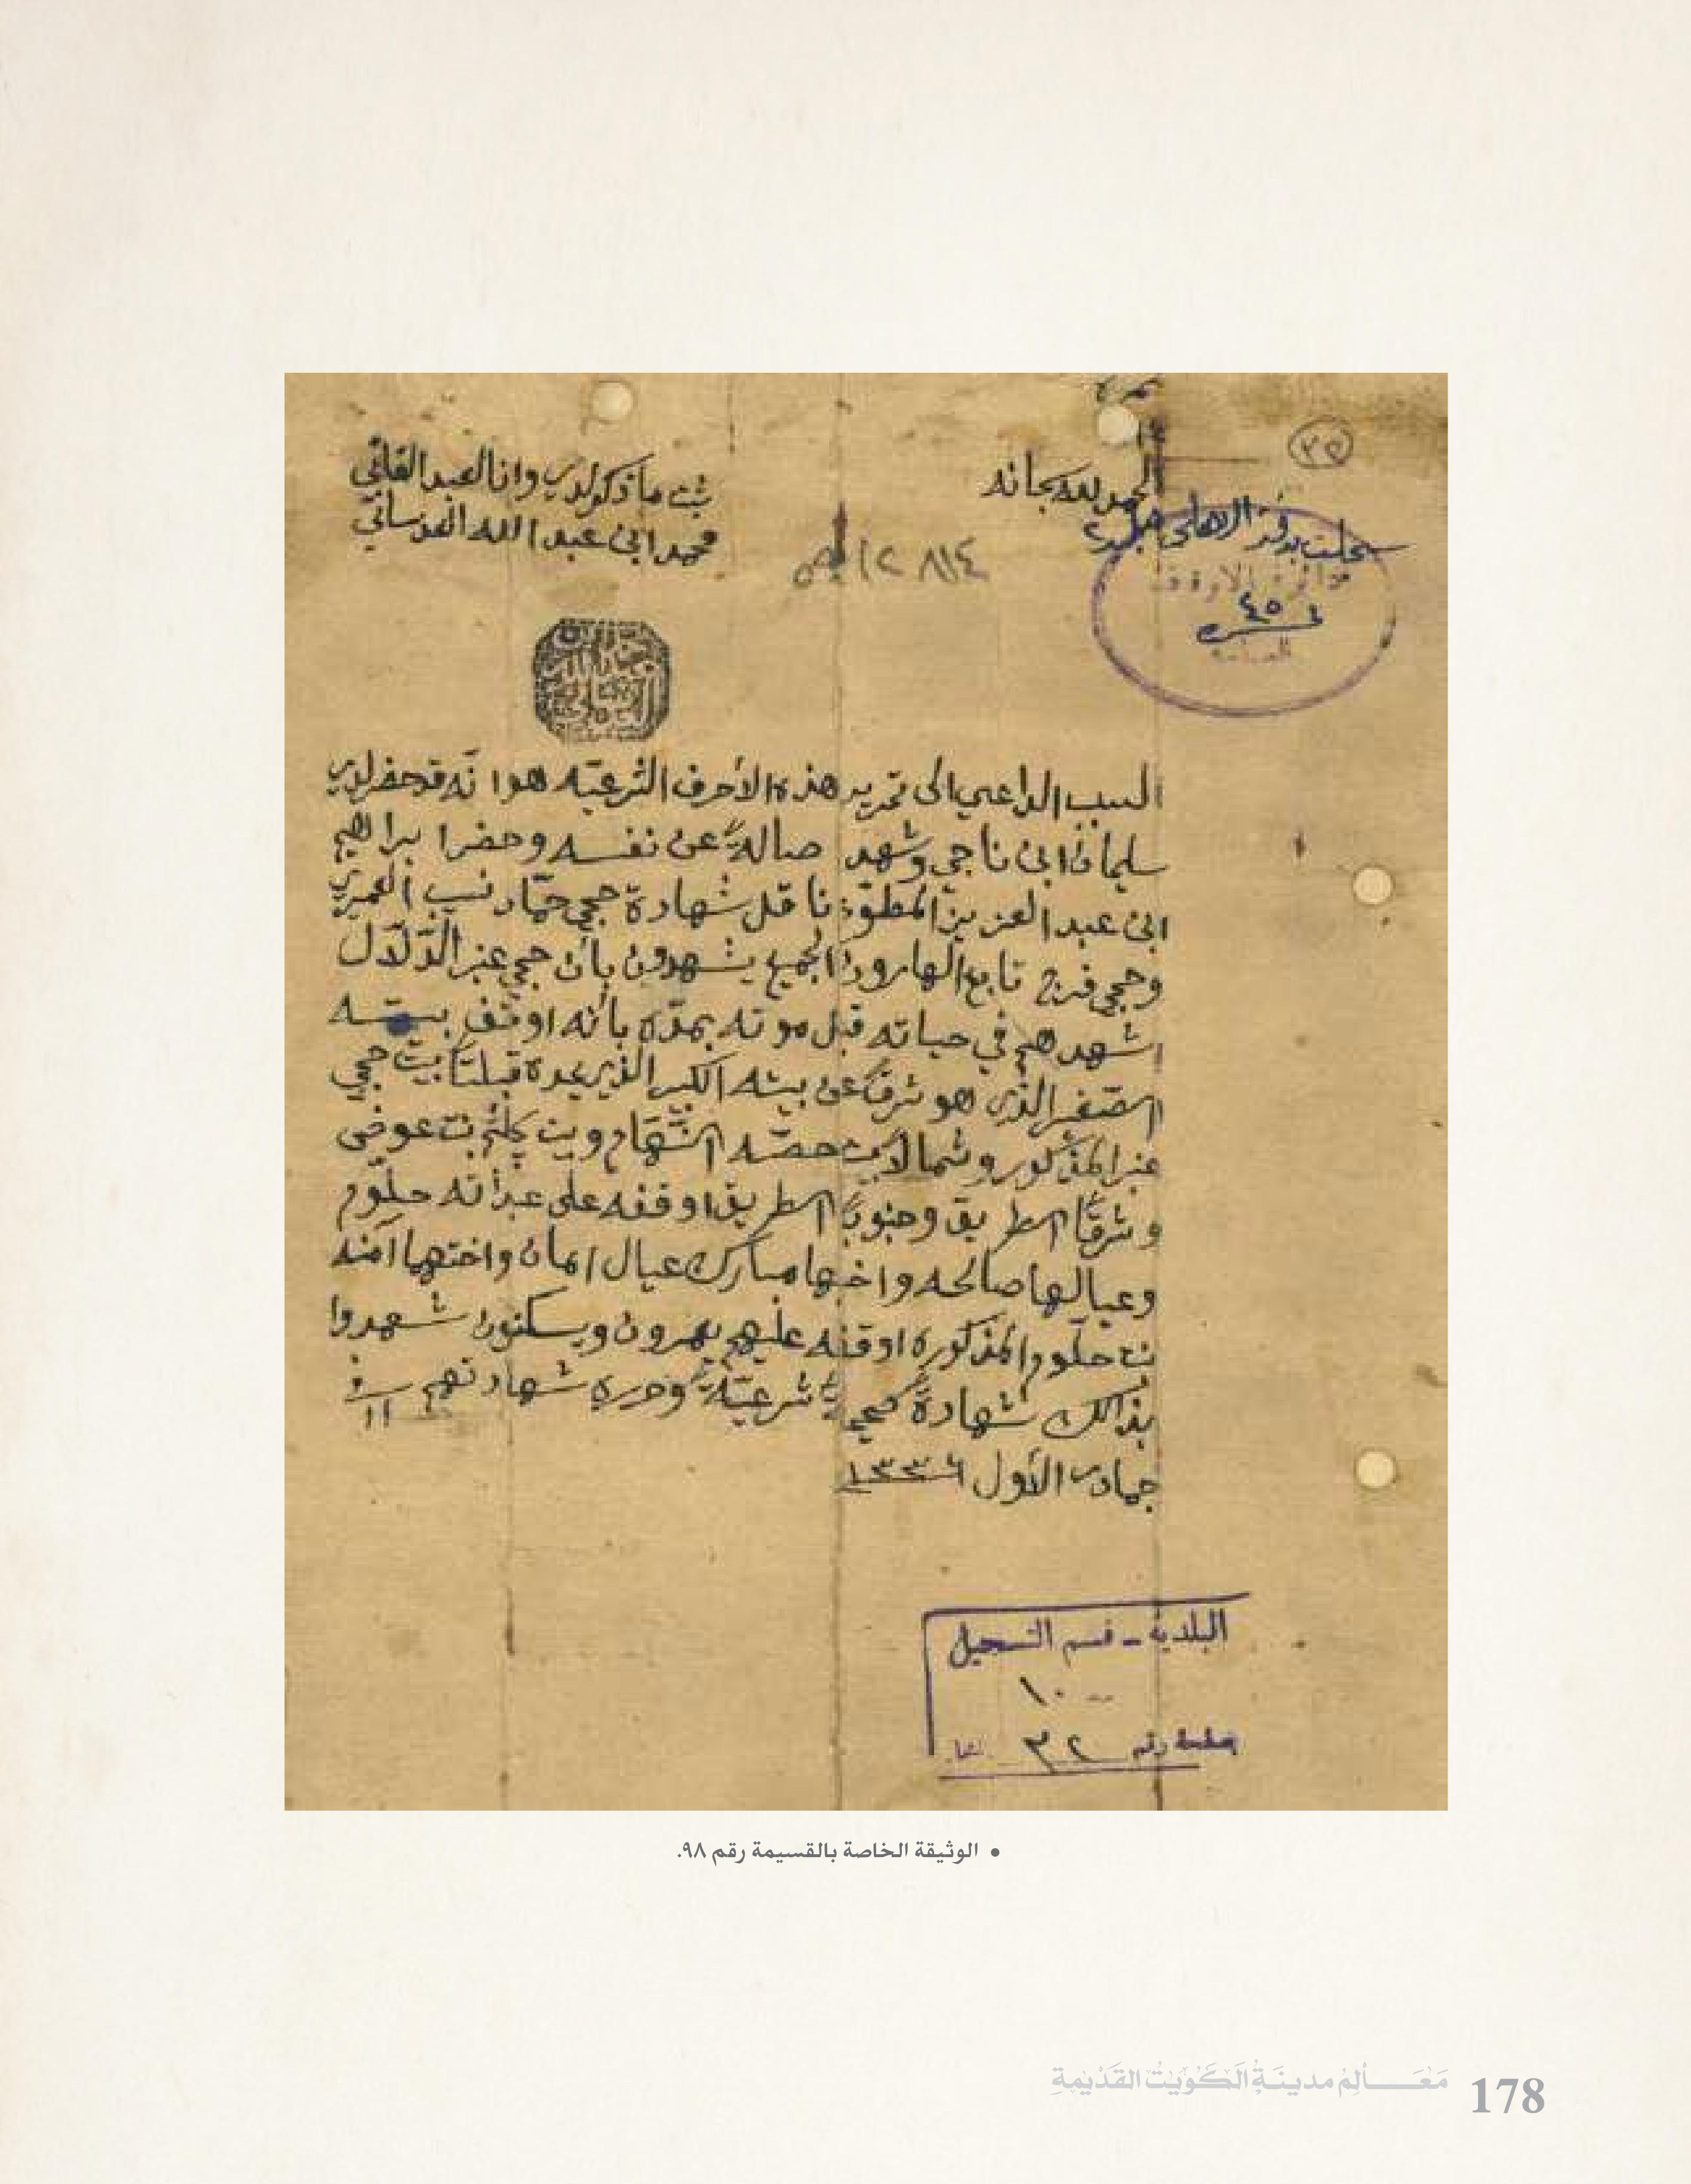 ٣٥
الحمد لله سبحانه
ثبت ما ذكر لدي وانا العبد الفاني
محمد ابن عبد الله العدساني
سجلت بدفتر الاهلي جلد ٢
٤٥
السبب الداعي الى تحرير هذه الأحرف الشرعيّه هوا نّه قد حضر لدي
سليمان ابن ناجي وشهد صالةً عن نفسه وحضرا براهيم
ابن عبد العزيز المطوّع ناقل شهادة حجي حمّاد نسيب العميري
وحجي فرج تابع الهارون الجميع يشهدون بأن حجي عنبر الدّلّال
اشهدهم في حياته قبل موته بمدّه بأنه اوقف بيته
الصّغير الذي هو شرقًا عن بيته الكبير الذي يحده قبلتًا بيت حجي
عنبر المذكور وشمالًا بيت حصّه النّهّام وبيت كلثم بنت عوض
وشرقًا الطريق وجنوبًا الطريق اوقفه على عبدأته حلّوم
وعيالها صالحه واخيها مبارك عيال امان واختهما آمنه
بنت حلّوم المذكوره اوقفه عليهم يعمرون ويسكنون شهدوا
بذالك شهادةً صحيحةً شرعيّةً وحرره شهادتهم في ١١
جمادى الأول ١٣٣٦
البلدية - قسم التسجيل
١٠
رقم ٣٢
• الوثيقة الخاصة بالقسيمة رقم ٩٨.
مَعَالِمُ مدينَةِ الكَوَيْت القَدْيمَةِ
178